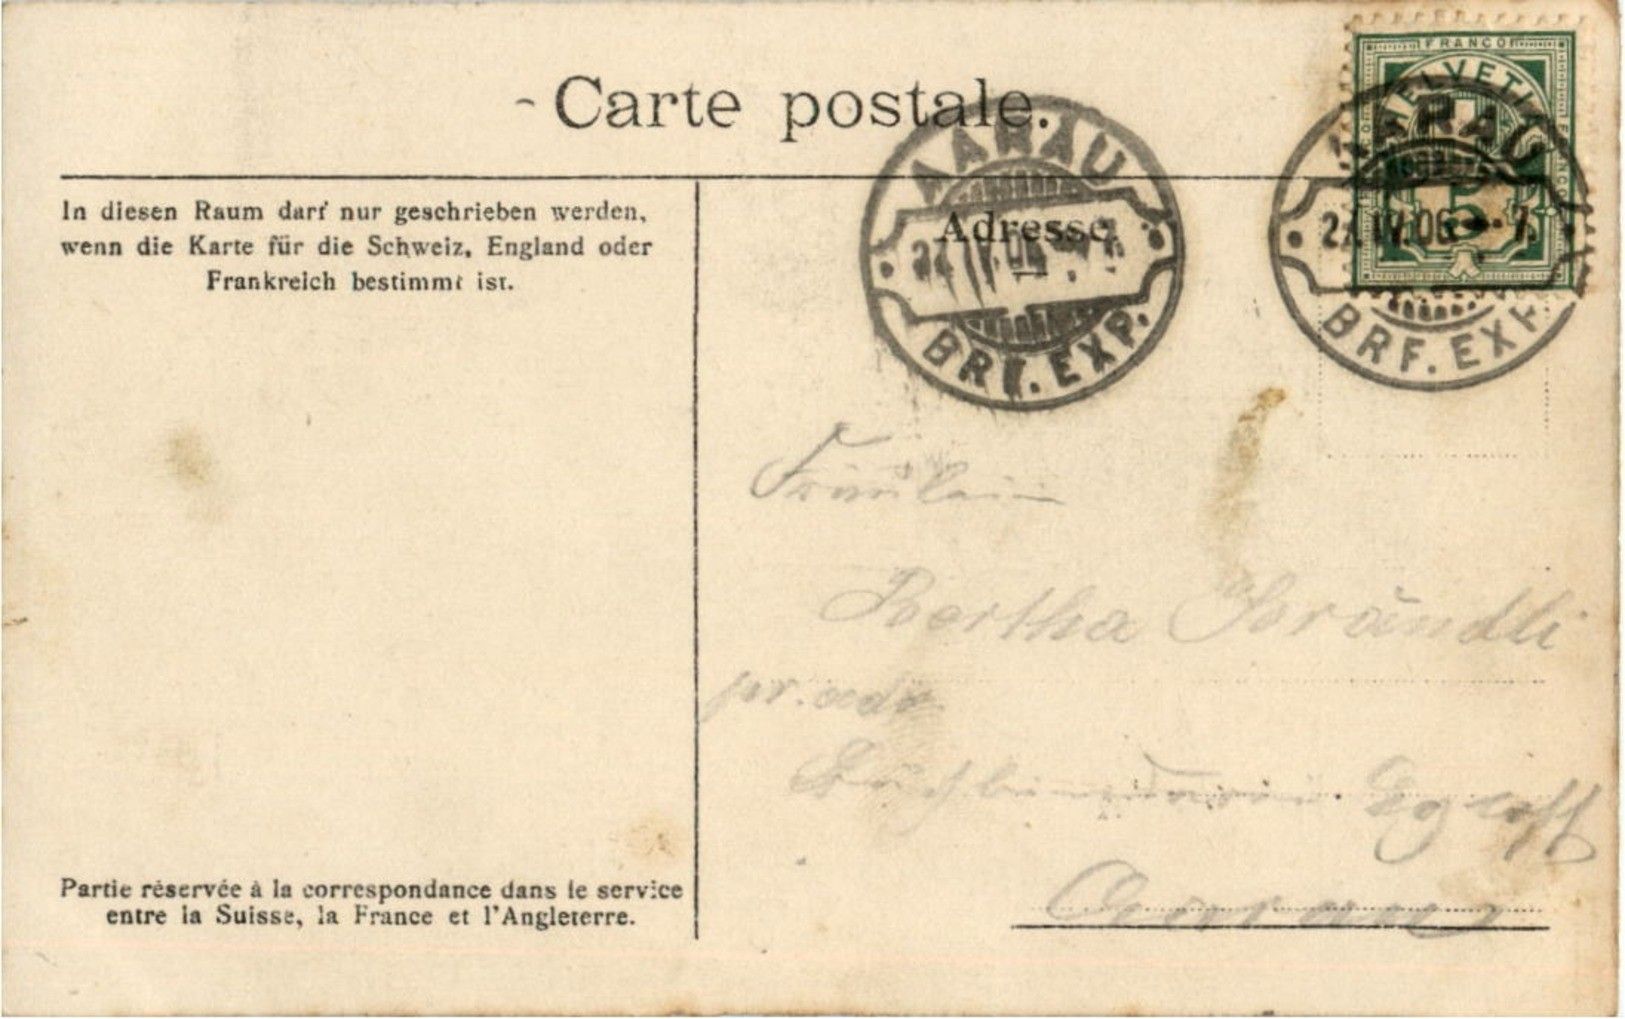 Carte postale.
FRANCO
HELVETIA
5
In diesen Raum darf nur geschrieben werden,
wenn die Karte für die Schweiz, England oder
Frankreich bestimmt ist.
Adresse
AARAU
IV.06
BRF. EXP.
AARAU
IV.06 - 7
BRF. EXP.
Fräulein
Bertha Brändli
pr. adr.
Buchbinderei Egloff
Aarau
Partie réservée à la correspondance dans le service
entre la Suisse, la France et l'Angleterre.